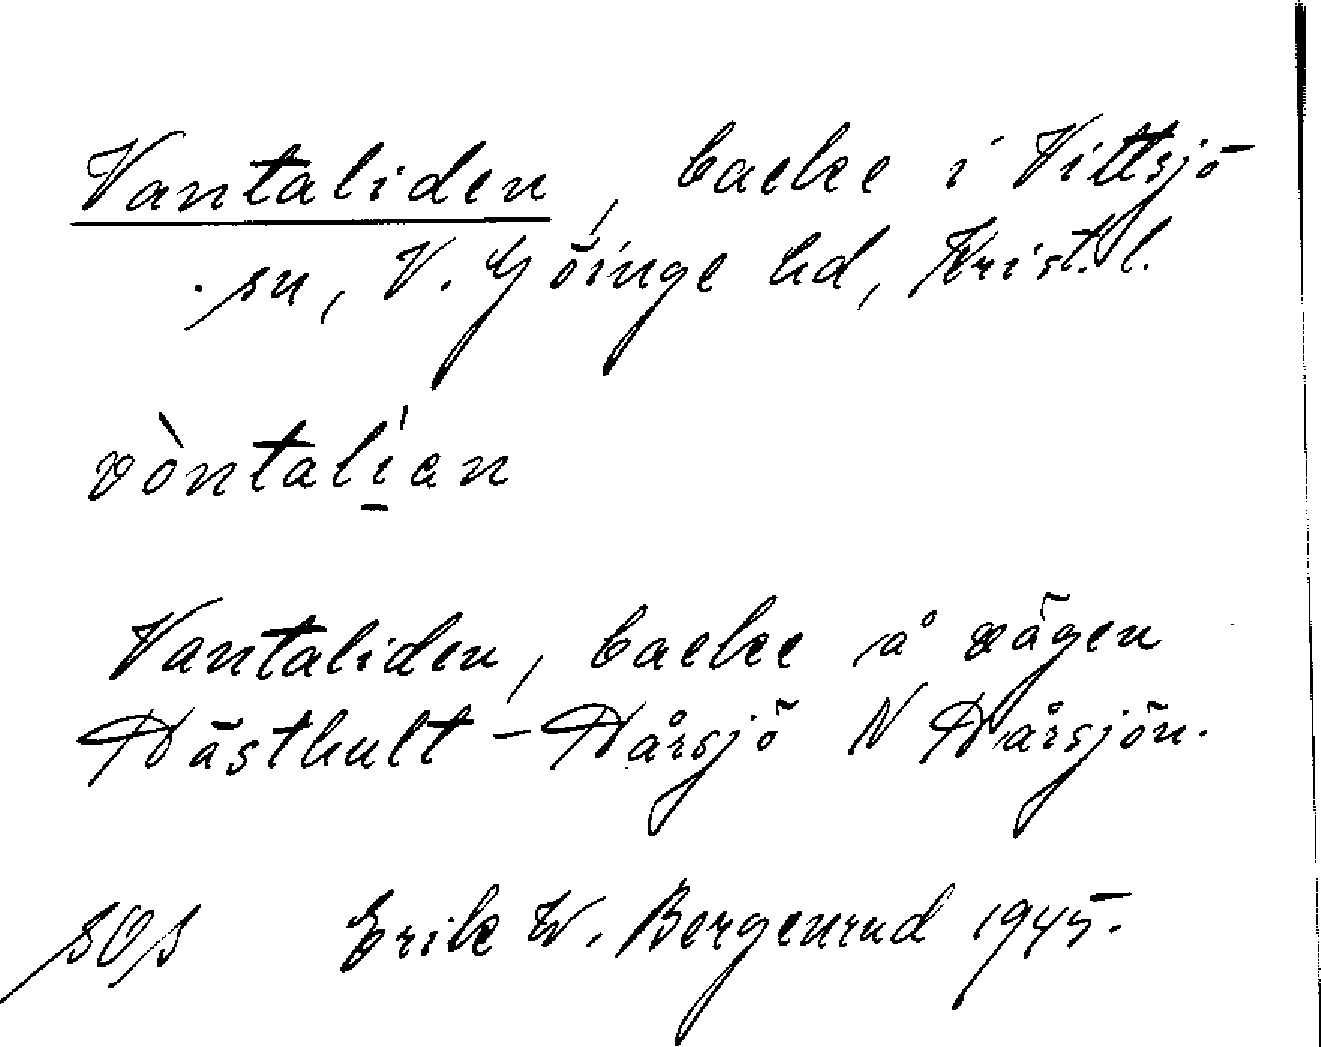 Vantaliden, backe i Vittsjö
sn, V. Göinge hd, Krist. l.
vòntalían
Vantaliden, backe å vägen
Hästhult - Hårsjö N Hårsjön.
Erik W. Bergenrud 1945.